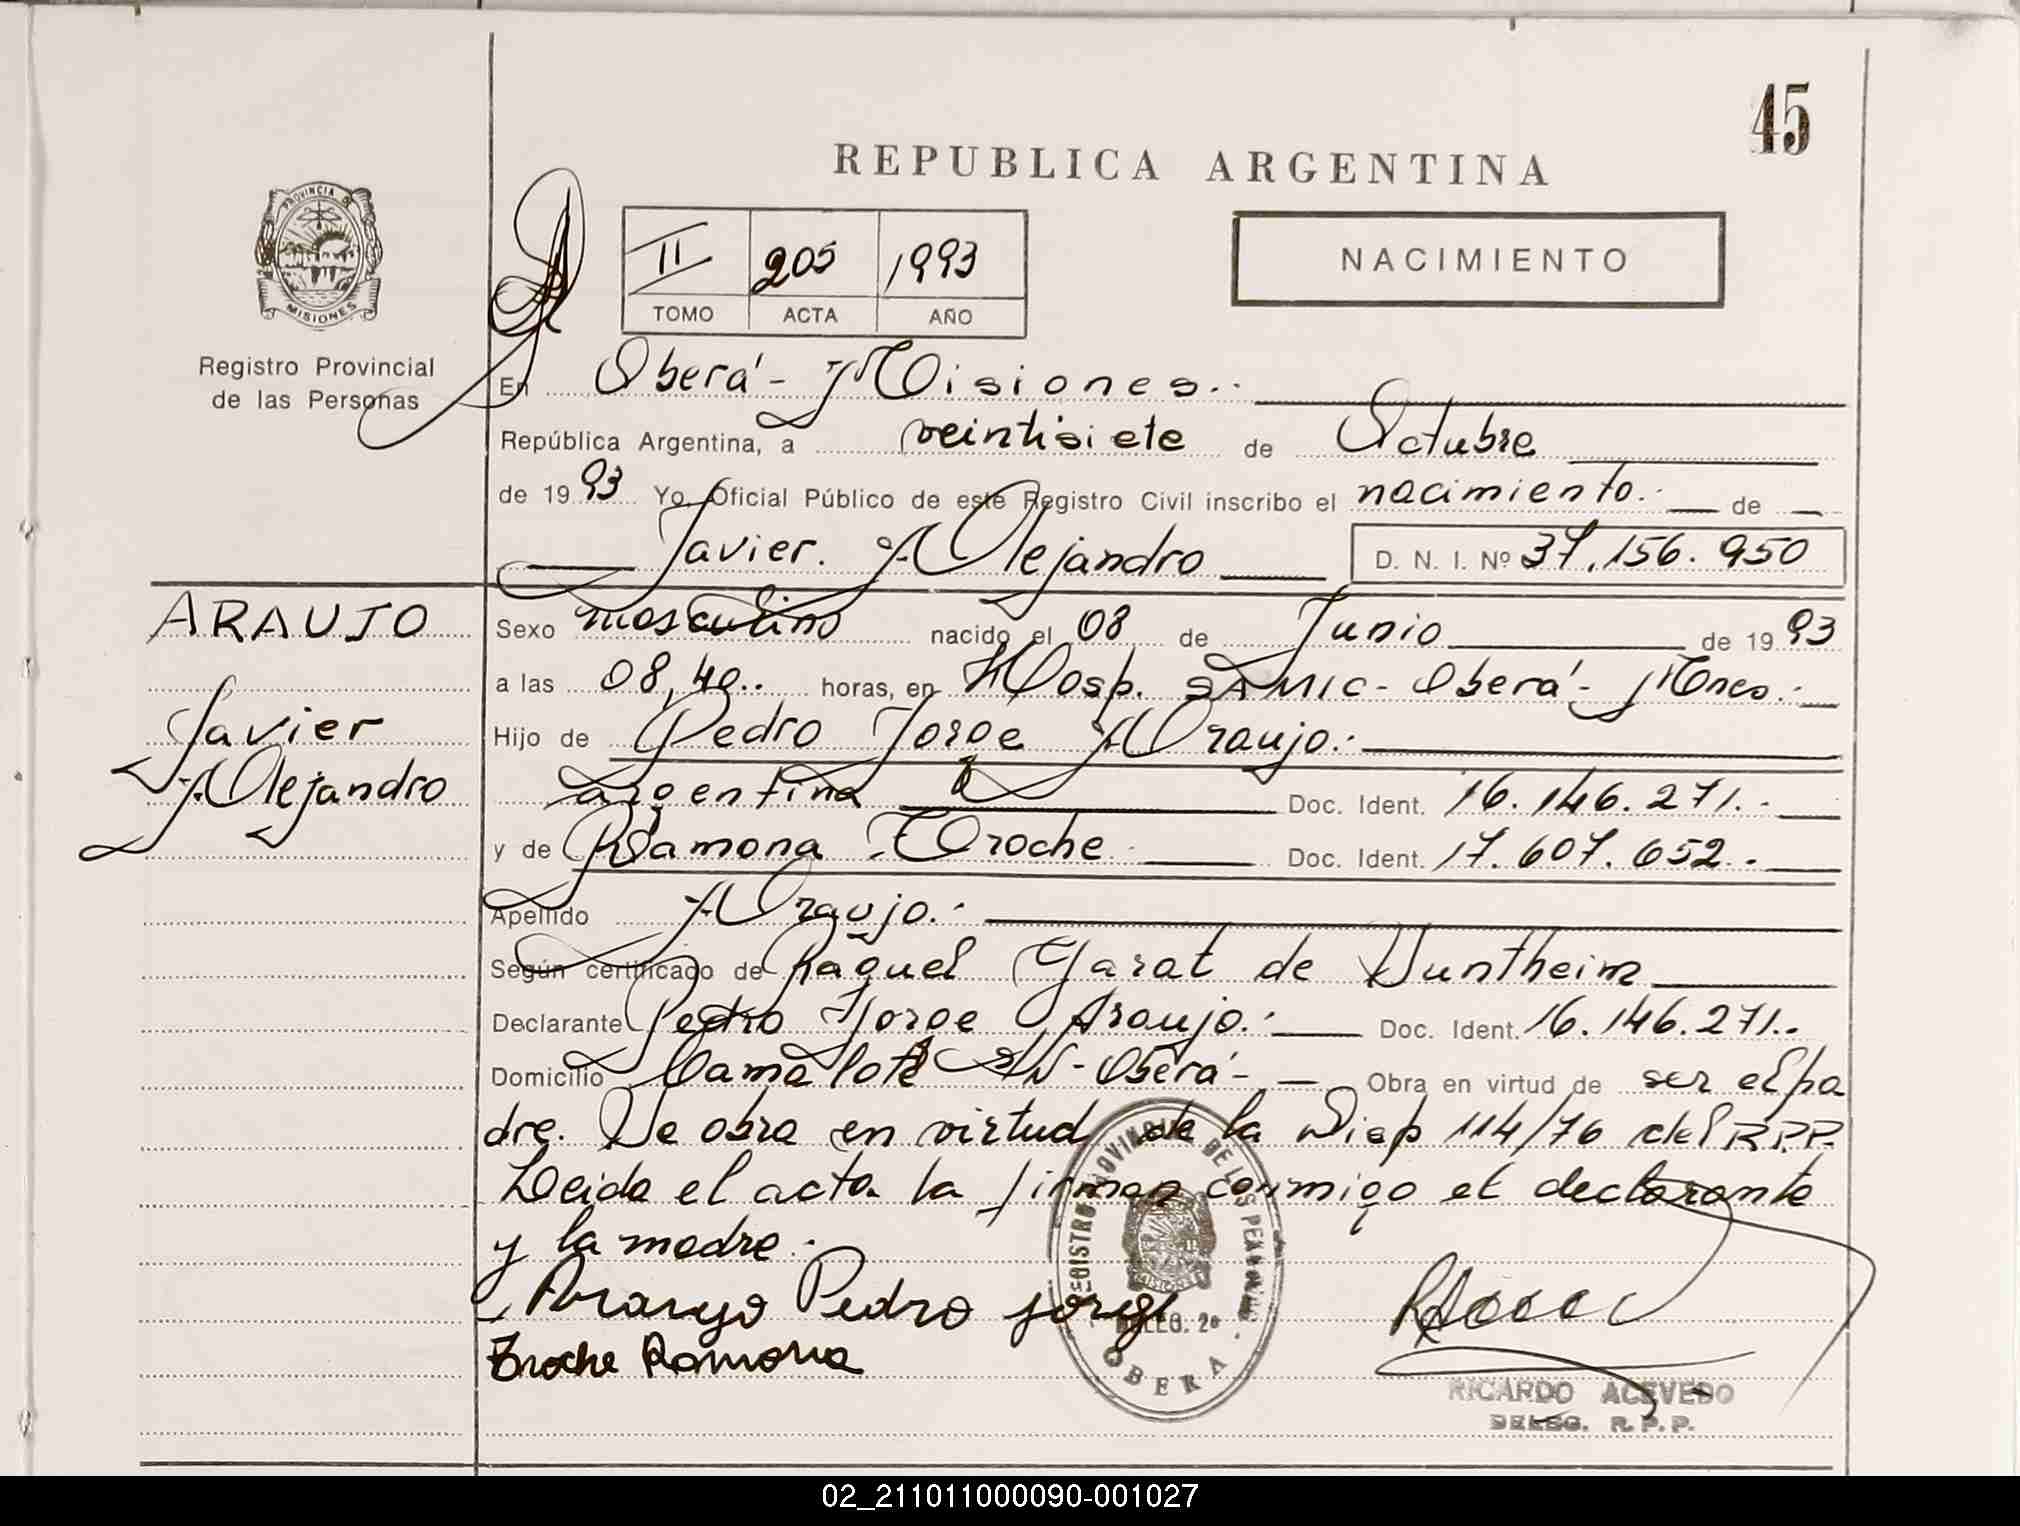 45
REPUBLICA ARGENTINA
PROVINCIA DE
MISIONES
Registro Provincial
de las Personas
II 205 1993
TOMO ACTA AÑO
NACIMIENTO
En Oberá - Misiones.-
República Argentina, a veintisiete de Octubre
de 1993 Yo Oficial Público de este Registro Civil inscribo el nacimiento.- de
Javier Alejandro D. N. I. Nº 37.156.950
ARAUJO
Javier
Alejandro
Sexo masculino nacido el 08 de Junio de 1993
a las 08,40.. horas, en Hosp. SAMIC - Oberá - Mnes.-
Hijo de Pedro Jorge Araujo.-
argentina Doc. Ident. 16.146.271.-
y de Ramona Troche Doc. Ident. 17.607.652.-
Apellido Araujo.-
Según certificado de Raquel Yarat de Duntheim
Declarante Pedro Jorge Araujo.- Doc. Ident. 16.146.271..
Domicilio Camalote S/N - Oberá - Obra en virtud de ser el pa
dre. Se obra en virtud de la Disp 114/76 del R.P.P.
Leida el acta la firman conmigo el declarante
y la madre.-
Araujo Pedro jorge
Troche Ramona
REGISTRO PROVINCIAL DE LAS PERSONAS
DELEG. 2ª
OBERA
RICARDO ACEVEDO
DELEG. R.P.P.
02_211011000090-001027